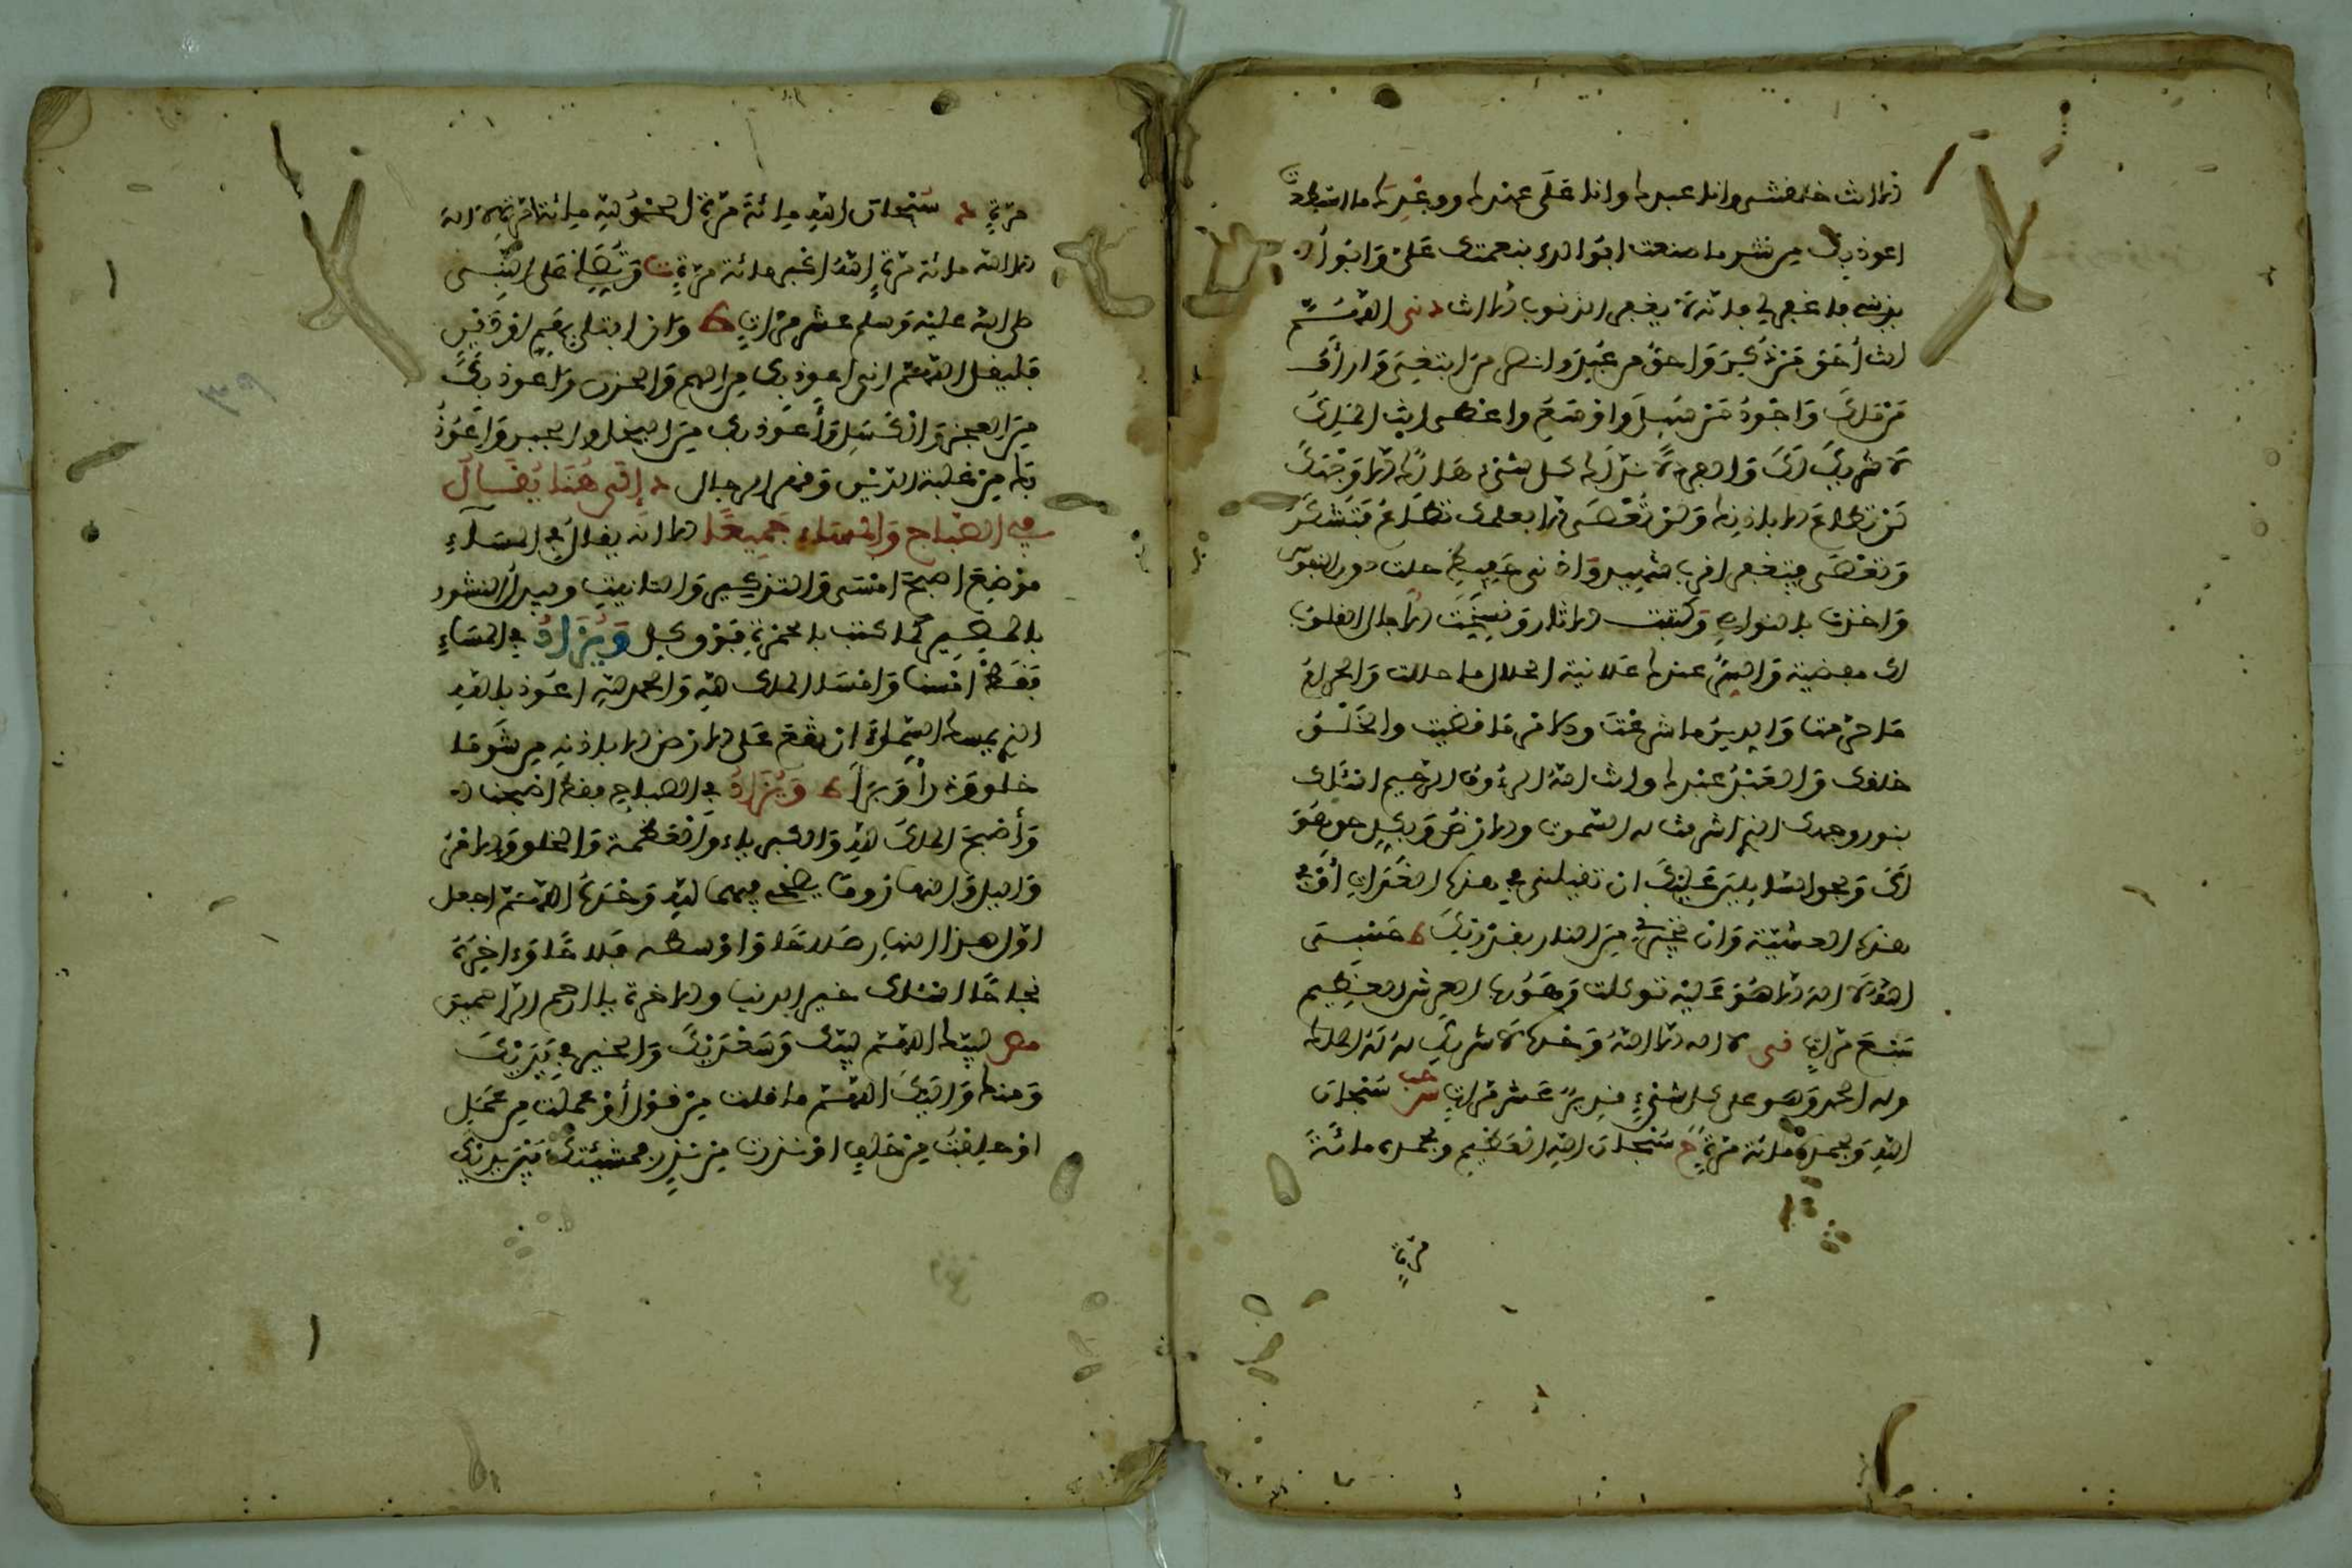 الا انت خلقتني وانا عبدك وانا على عهدك ووعدك ما استطعت
اعوذ بك من شر ما صنعت ابوء لك بنعمتك علي وابوء
بذنبي فاغفر لي فانه لا يغفر الذنوب الا انت اللهم
انت أحق من ذكر واحق من عبد وانصر من ابتغي وارأف
من ملك واجود من سئل واوسع من اعطى انت الملك
لا شريك لك والفرد لا ند لك كل شيء هالك الا وجهك
لن تطاع الا باذنك ولن تعصى الا بعلمك تطاع فتشكر
وتعصى فتغفر اقرب شهيد وادنى حفيظ حلت دون النفوس
واخذت بالنواصي وكتبت الاثار ونسخت الاجال القلوب
لك مفضية والسر عندك علانية الحلال ما حللت والحرام
ما حرمت والدين ما شرعت والامر ما قضيت والخلق
خلقك والعبد عبدك وانت الله الرءوف الرحيم اسئلك
بنور وجهك الذي اشرقت له السموت والارض وبكل حق هو
لك وبحق السايلين عليك ان تقيلني في هذه الغداة أو في
هذه العشية وان تجيرني من النار بقدرتك حسبي
الله لا اله الا هو عليه توكلت وهو رب العرش العظيم
سبع مرات لا اله الا الله وحده لا شريك له له الملك
وله الحمد وهو على كل شيء قدير عشر مرات سبحان
الله وبحمده مائة مرة سبحان الله العظيم وبحمده مائة
مرة
مرة سبحان الله مائة مرة الحمد لله مائة مرة لا اله
الا الله مائة مرة الله اكبر مائة مرة ويصلي على النبي
صلى الله عليه وسلم عشر مرات وان ابتلي بهم او دين
فليقل اللهم اني اعوذ بك من الهم والحزن واعوذ بك
من العجز والكسل وأعوذ بك من البخل والجبن واعوذ
بك من غلبة الدين وقهر الرجال د إلى هنا يقال
في الصباح والمساء جميعا الا انه يقال في المساء
موضع اصبح امسى والتذكير والتانيث ويبدل النشور
بالمصير كما كتب بالحمرة فوق كل ويزاد في المساء
فقط امسينا وامسى الملك لله والحمد لله اعوذ بالله
الذي يمسك السماء ان تقع على الارض الا باذنه من شر ما
خلق وذرأ وبرأ ويزاد في الصباح فقط اصبحنا
وأصبح الملك لله والكبرياء والعظمة والخلق والامر
واليل والنهار وما يضحى فيهما لله وحده اللهم اجعل
اول هذا النهار صلاحا واوسطه فلاحا وءاخره
نجاحا اسئلك خير الدنيا والاخرة يا ارحم الراحمين
لبيك اللهم لبيك وسعديك والخير في يديك
ومنك واليك اللهم ما قلت من قول أو عملت من عمل
او حلفت من حلف او نذرت من نذر فمشيئتك بين يدي